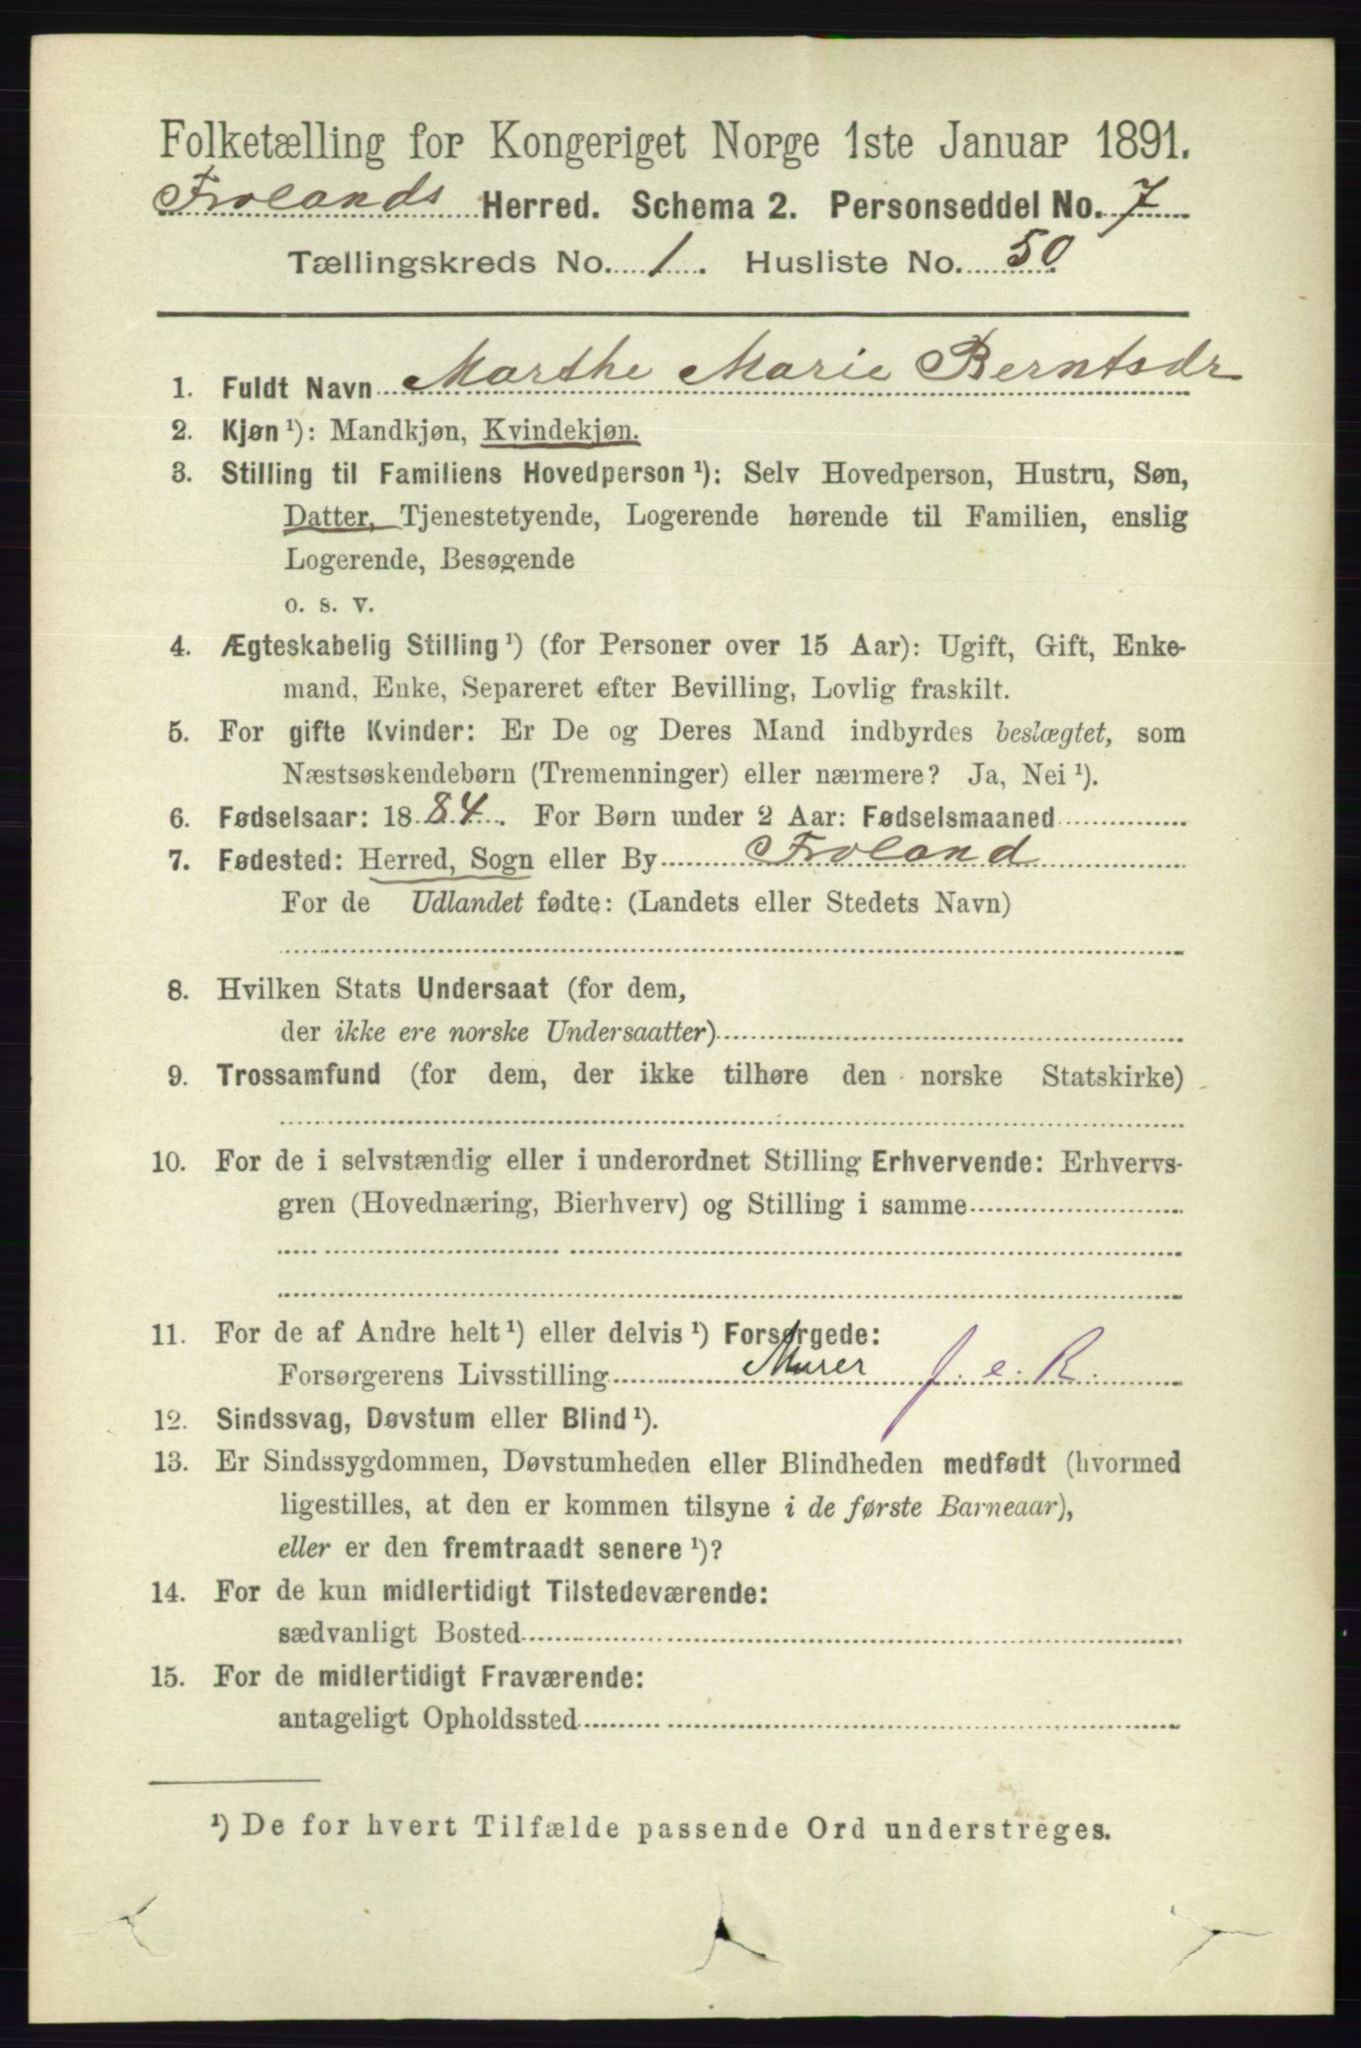 Folketælling for Kongeriget Norge 1ste Januar 1891.
Frolands Herred. Schema 2. Personseddel No. 7
Tællingskreds No. 1. Husliste No. 50
1. Fuldt Navn Marthe Marie Berntsdr
2. Kjøn ¹): Mandkjøn, Kvindekjøn.
3. Stilling til Familiens Hovedperson ¹): Selv Hovedperson, Hustru, Søn,
Datter, Tjenestetyende, Logerende hørende til Familien, enslig
Logerende, Besøgende
o. s. v.
4. Ægteskabelig Stilling ¹) (for Personer over 15 Aar): Ugift, Gift, Enke-
mand, Enke, Separeret efter Bevilling, Lovlig fraskilt.
5. For gifte Kvinder: Er De og Deres Mand indbyrdes beslægtet, som
Næstsøskendebørn (Tremenninger) eller nærmere? Ja, Nei ¹).
6. Fødselsaar: 1884. For Børn under 2 Aar: Fødselsmaaned
7. Fødested: Herred, Sogn eller By Froland
For de Udlandet fødte: (Landets eller Stedets Navn)
8. Hvilken Stats Undersaat (for dem,
der ikke ere norske Undersaatter)
9. Trossamfund (for dem, der ikke tilhøre den norske Statskirke)
10. For de i selvstændig eller i underordnet Stilling Erhvervende: Erhvervs-
gren (Hovednæring, Bierhverv) og Stilling i samme
11. For de af Andre helt ¹) eller delvis ¹) Forsørgede:
Forsørgerens Livsstilling Murer J. e. R.
12. Sindssvag, Døvstum eller Blind ¹).
13. Er Sindssygdommen, Døvstumheden eller Blindheden medfødt (hvormed
ligestilles, at den er kommen tilsyne i de første Barneaar),
eller er den fremtraadt senere ¹)?
14. For de kun midlertidigt Tilstedeværende:
sædvanligt Bosted
15. For de midlertidigt Fraværende:
antageligt Opholdssted
¹) De for hvert Tilfælde passende Ord understreges.